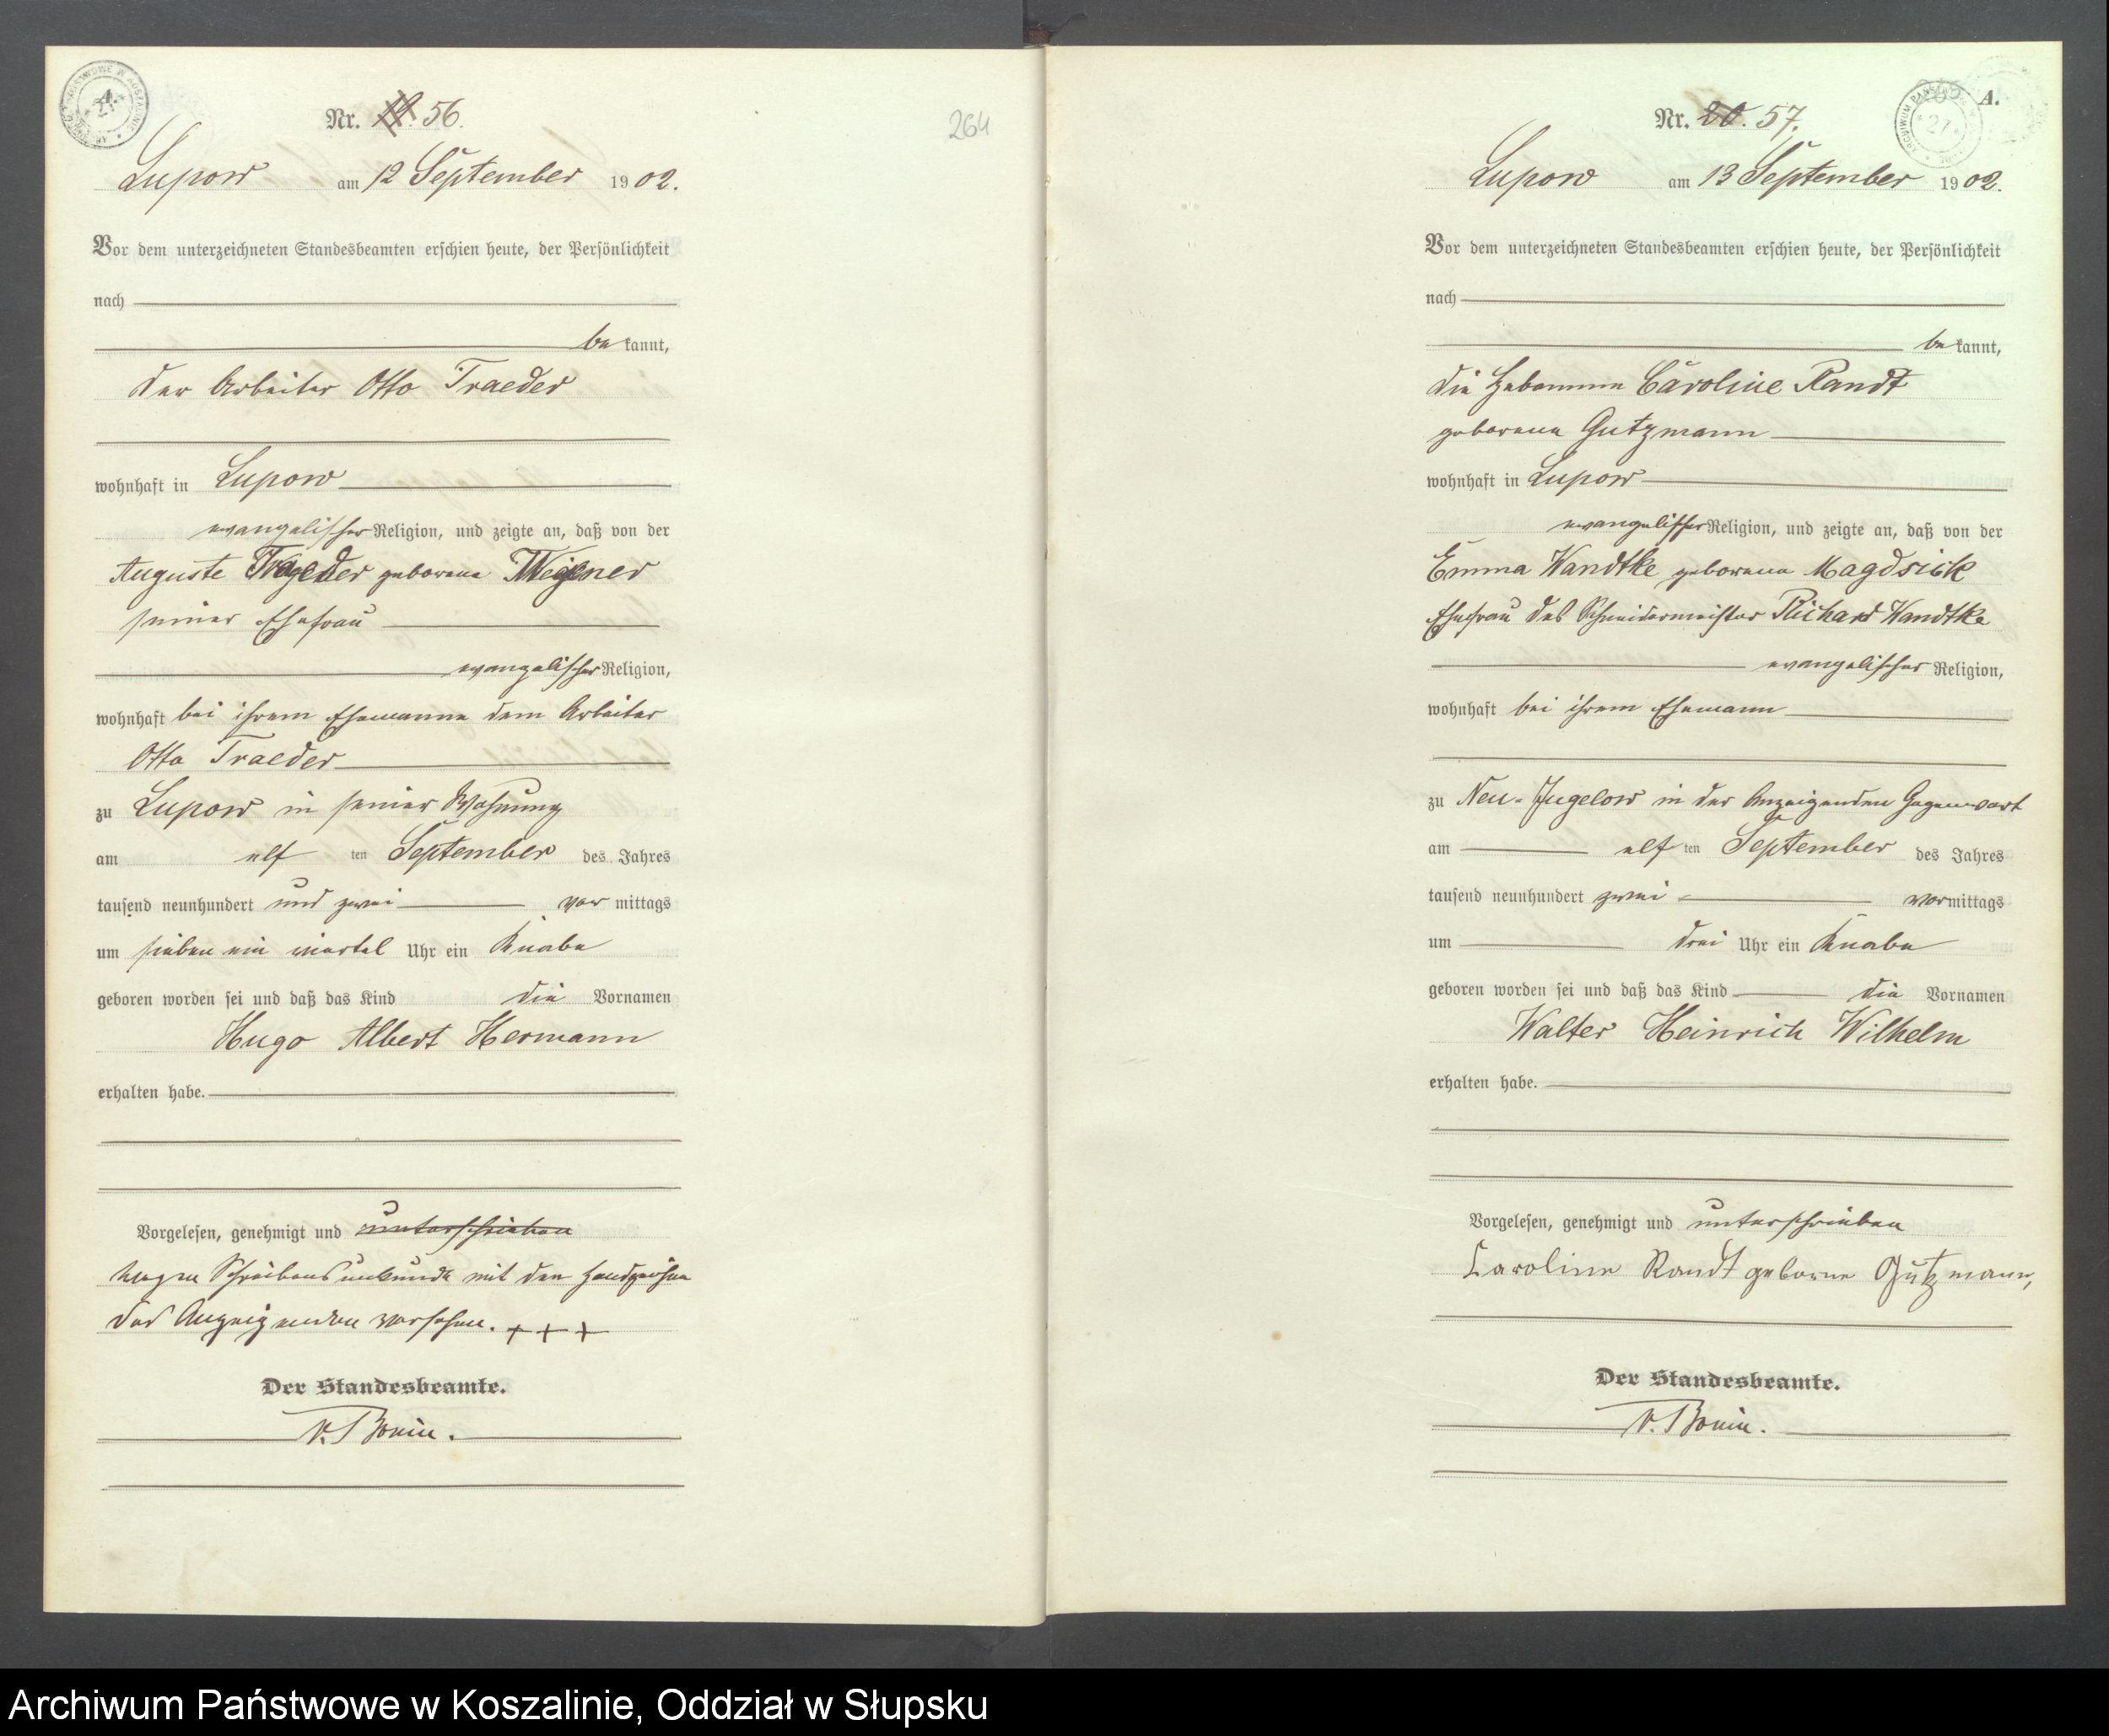 Nr. 56.
264
Lupow am 12 September 1902.
Vor dem unterzeichneten Standesbeamten erschien heute, der Persönlichkeit
nach
bekannt,
der Arbeiter Otto Traeder
wohnhaft in Lupow
evangelischer Religion, und zeigte an, daß von der
Auguste Traeder geborene Wegner
seiner Ehefrau
evangelischer Religion,
wohnhaft bei ihrem Ehemanne dem Arbeiter
Otto Traeder
zu Lupow in seiner Wohnung
am elf ten September des Jahres
tausend neunhundert und zwei vormittags
um sieben ein viertel Uhr ein Knabe
geboren worden sei und daß das Kind die Vornamen
Hugo Albert Hermann
erhalten habe.
Vorgelesen, genehmigt und unterschrieben
wegen Schreibensunkunde mit den Handzeichen
des Anzeigenden versehen. + + +
Der Standesbeamte.
v. Bonin.
A.
Nr. 20. 57.
Lupow am 13 September 1902.
Vor dem unterzeichneten Standesbeamten erschien heute, der Persönlichkeit
nach
bekannt,
die Hebamme Caroline Randt
geborene Gutzmann
wohnhaft in Lupow
evangelischer Religion, und zeigte an, daß von der
Emma Wandtke geborene Magdsick
Ehefrau des Schneidermeister Richard Wandtke
evangelischer Religion,
wohnhaft bei ihrem Ehemann
zu Neu-Jugelow in der Anzeigenden Gegenwart
am elf ten September des Jahres
tausend neunhundert zwei vormittags
um drei Uhr ein Knabe
geboren worden sei und daß das Kind die Vornamen
Walter Heinrich Wilhelm
erhalten habe.
Vorgelesen, genehmigt und unterschrieben
Caroline Randt geborne Gutzmann,
Der Standesbeamte.
v. Bonin.
Archiwum Państwowe w Koszalinie, Oddział w Słupsku